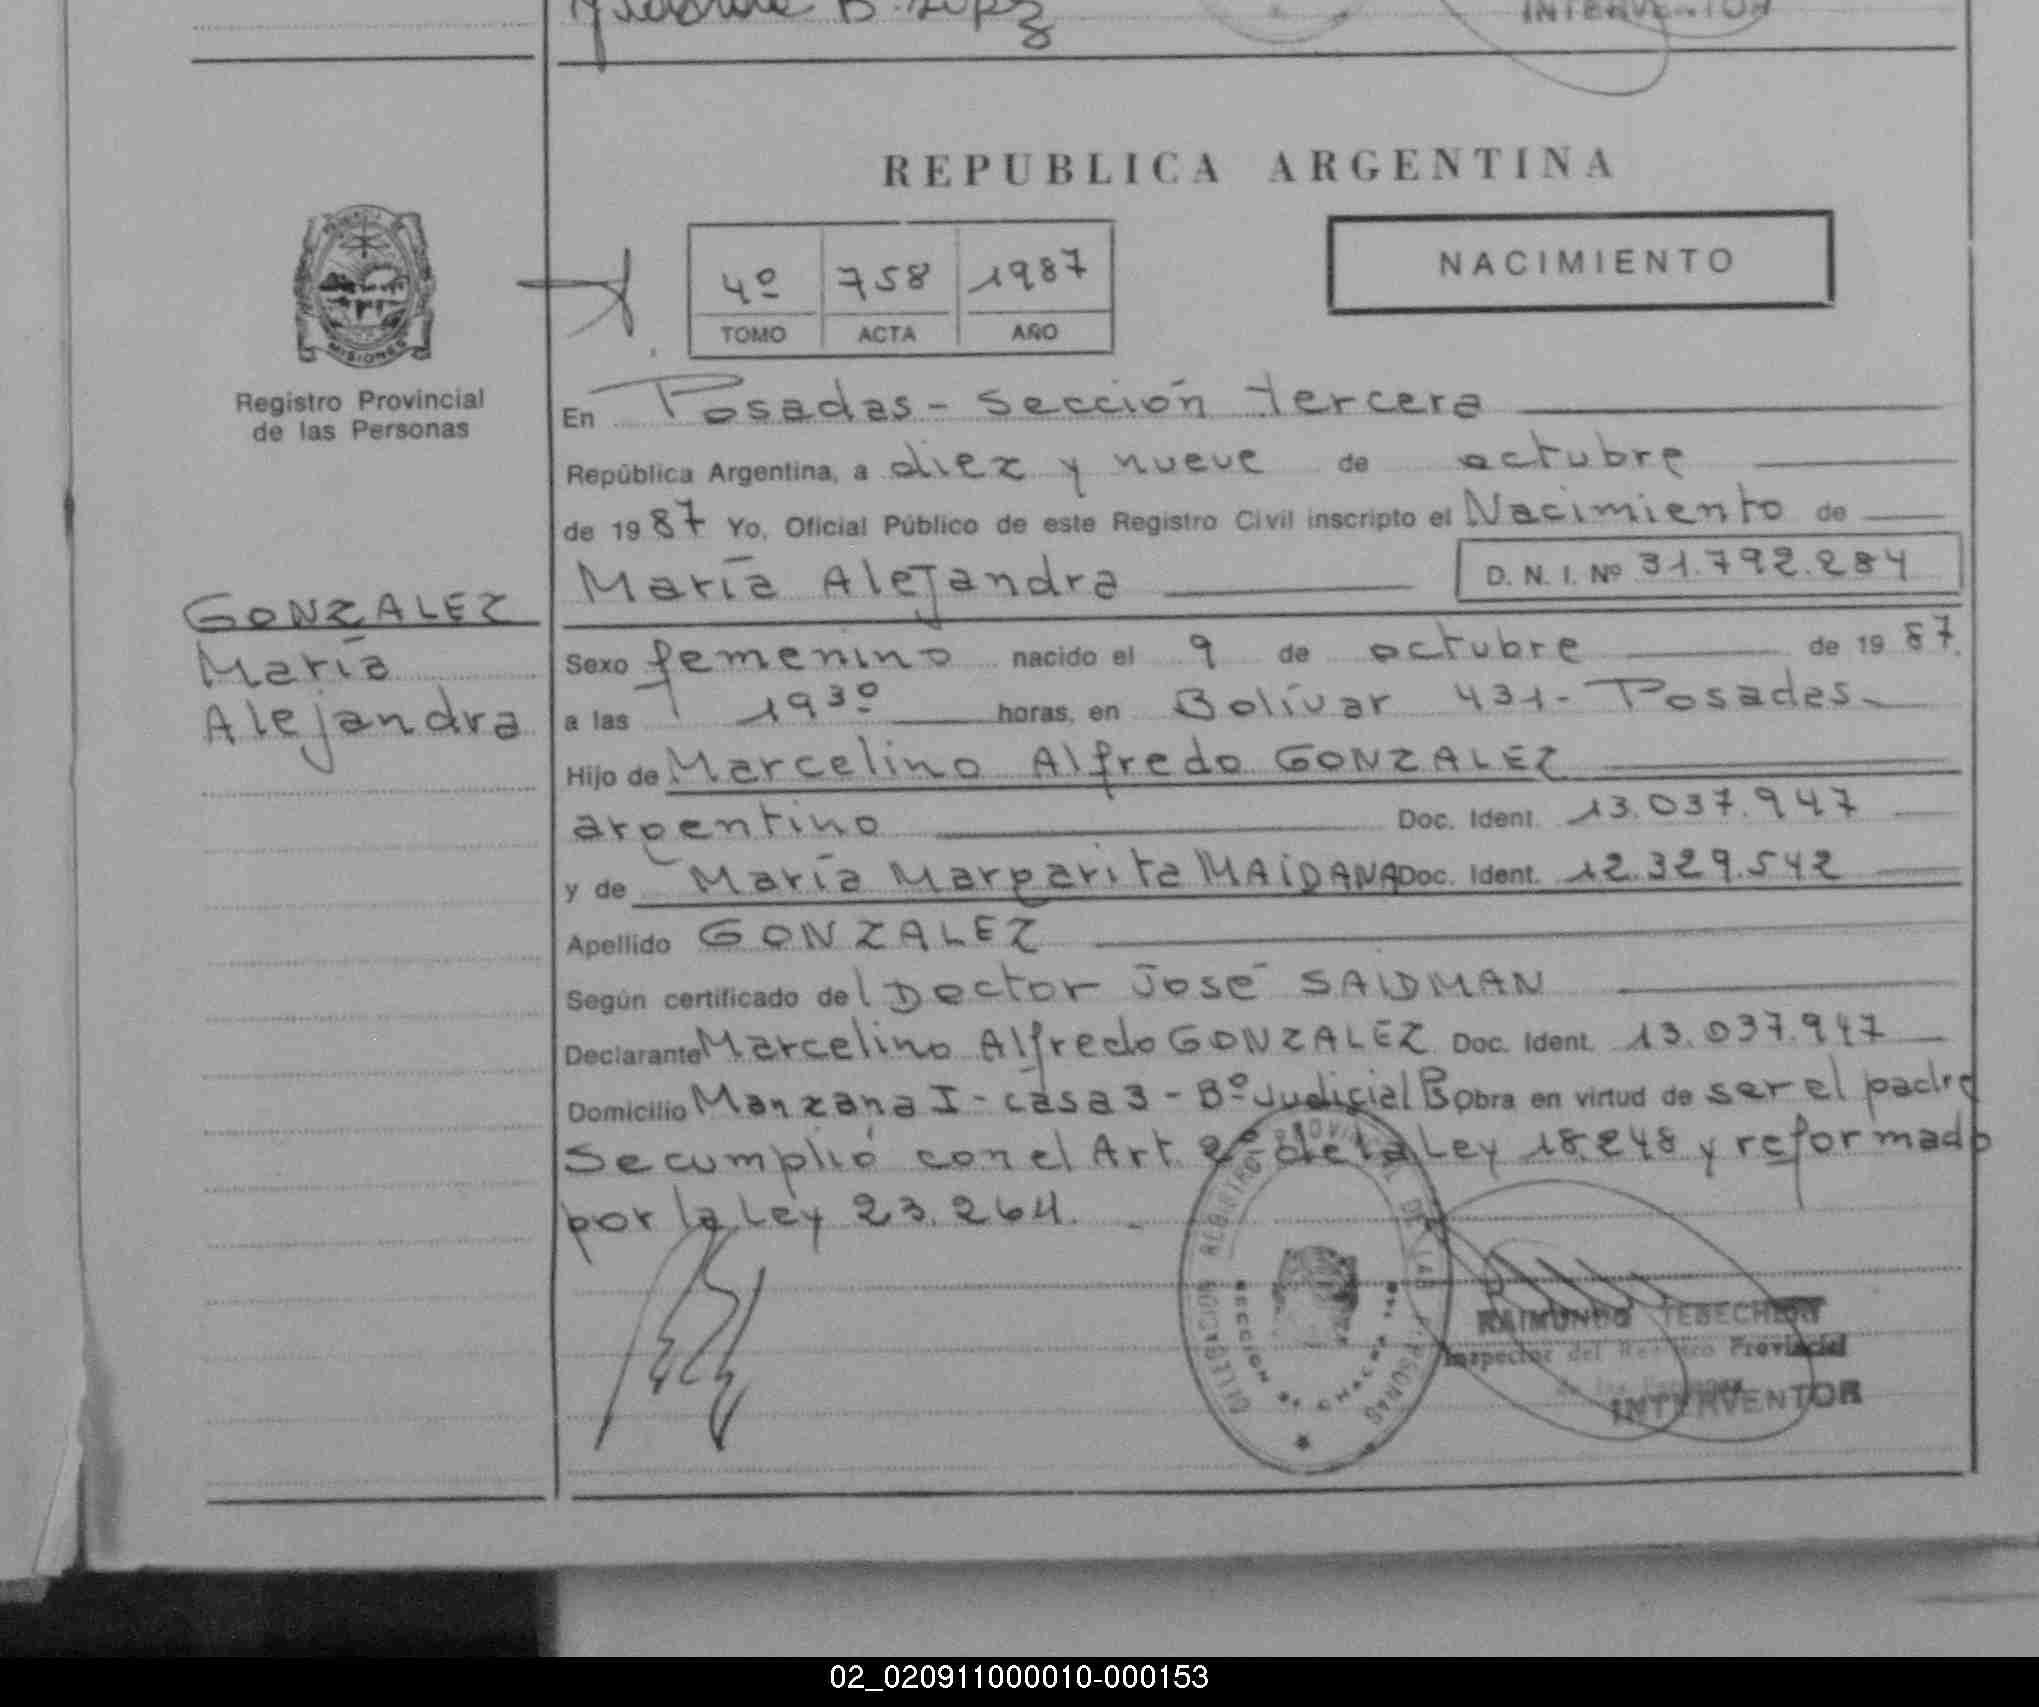 INTERVENTOR
REPUBLICA ARGENTINA
NACIMIENTO
4º 758 1987
TOMO ACTA AÑO
MISIONES
Registro Provincial
de las Personas
En Posadas - Sección tercera
República Argentina, a diez y nueve de octubre
de 1987 Yo, Oficial Público de este Registro Civil inscripto el Nacimiento de
María Alejandra D. N. I. Nº 31.792.284
GONZALEZ
María
Alejandra
Sexo femenino nacido el 9 de octubre de 1987.
a las 19³º horas, en Bolívar 431 - Posadas
Hijo de Marcelino Alfredo GONZALEZ
argentino Doc. Ident. 13.037.947
y de María Margarita MAIDANA Doc. Ident. 12.329.542
Apellido GONZALEZ
Según certificado del Doctor José SAIDMAN
Declarante Marcelino Alfredo GONZALEZ Doc. Ident. 13.037.947
Domicilio Manzana I - casa 3 - Bº Judicial Obra en virtud de ser el padre
Se cumplió con el Art. 2º de la Ley 18.248 y reformado
por la Ley 23.264.
DELEGACION REGISTRO PROVINCIAL DE LAS PERSONAS
RAIMUNDO
Inspector del Registro Provincial
de las Personas
INTERVENTOR
02_020911000010-000153